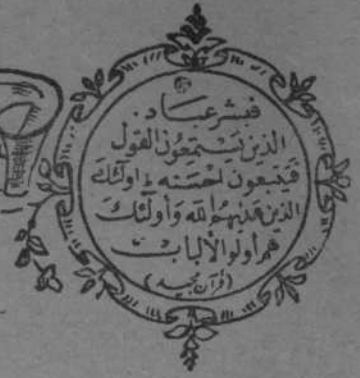 فبشر عباد .
الذين يَسْتَمِعُون القول
فَيَتبعون احْسَنه اولَئكَ
الذين هَدَيهُم الله وَأولَئكَ
هم أولو الألباب
(قرآن مجيد)